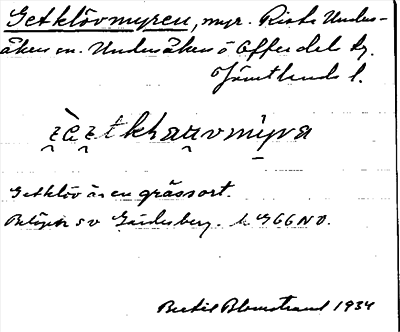 Getklövmyren, myr. Rista Unders-
åkers sn. Undersåkers o Offerdal tg.
Jämtlands l.
kɦaṷvmyra
Getklöv är en grässort.
Belägen sv Gäulesberg. k G66NO.
Bertil Blomstrand 1934